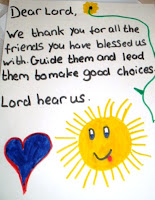 Dear Lord,
We thank you for all the
friends you have blessed us
with. Guide them and lead
them to make good choices.
Lord hear us.